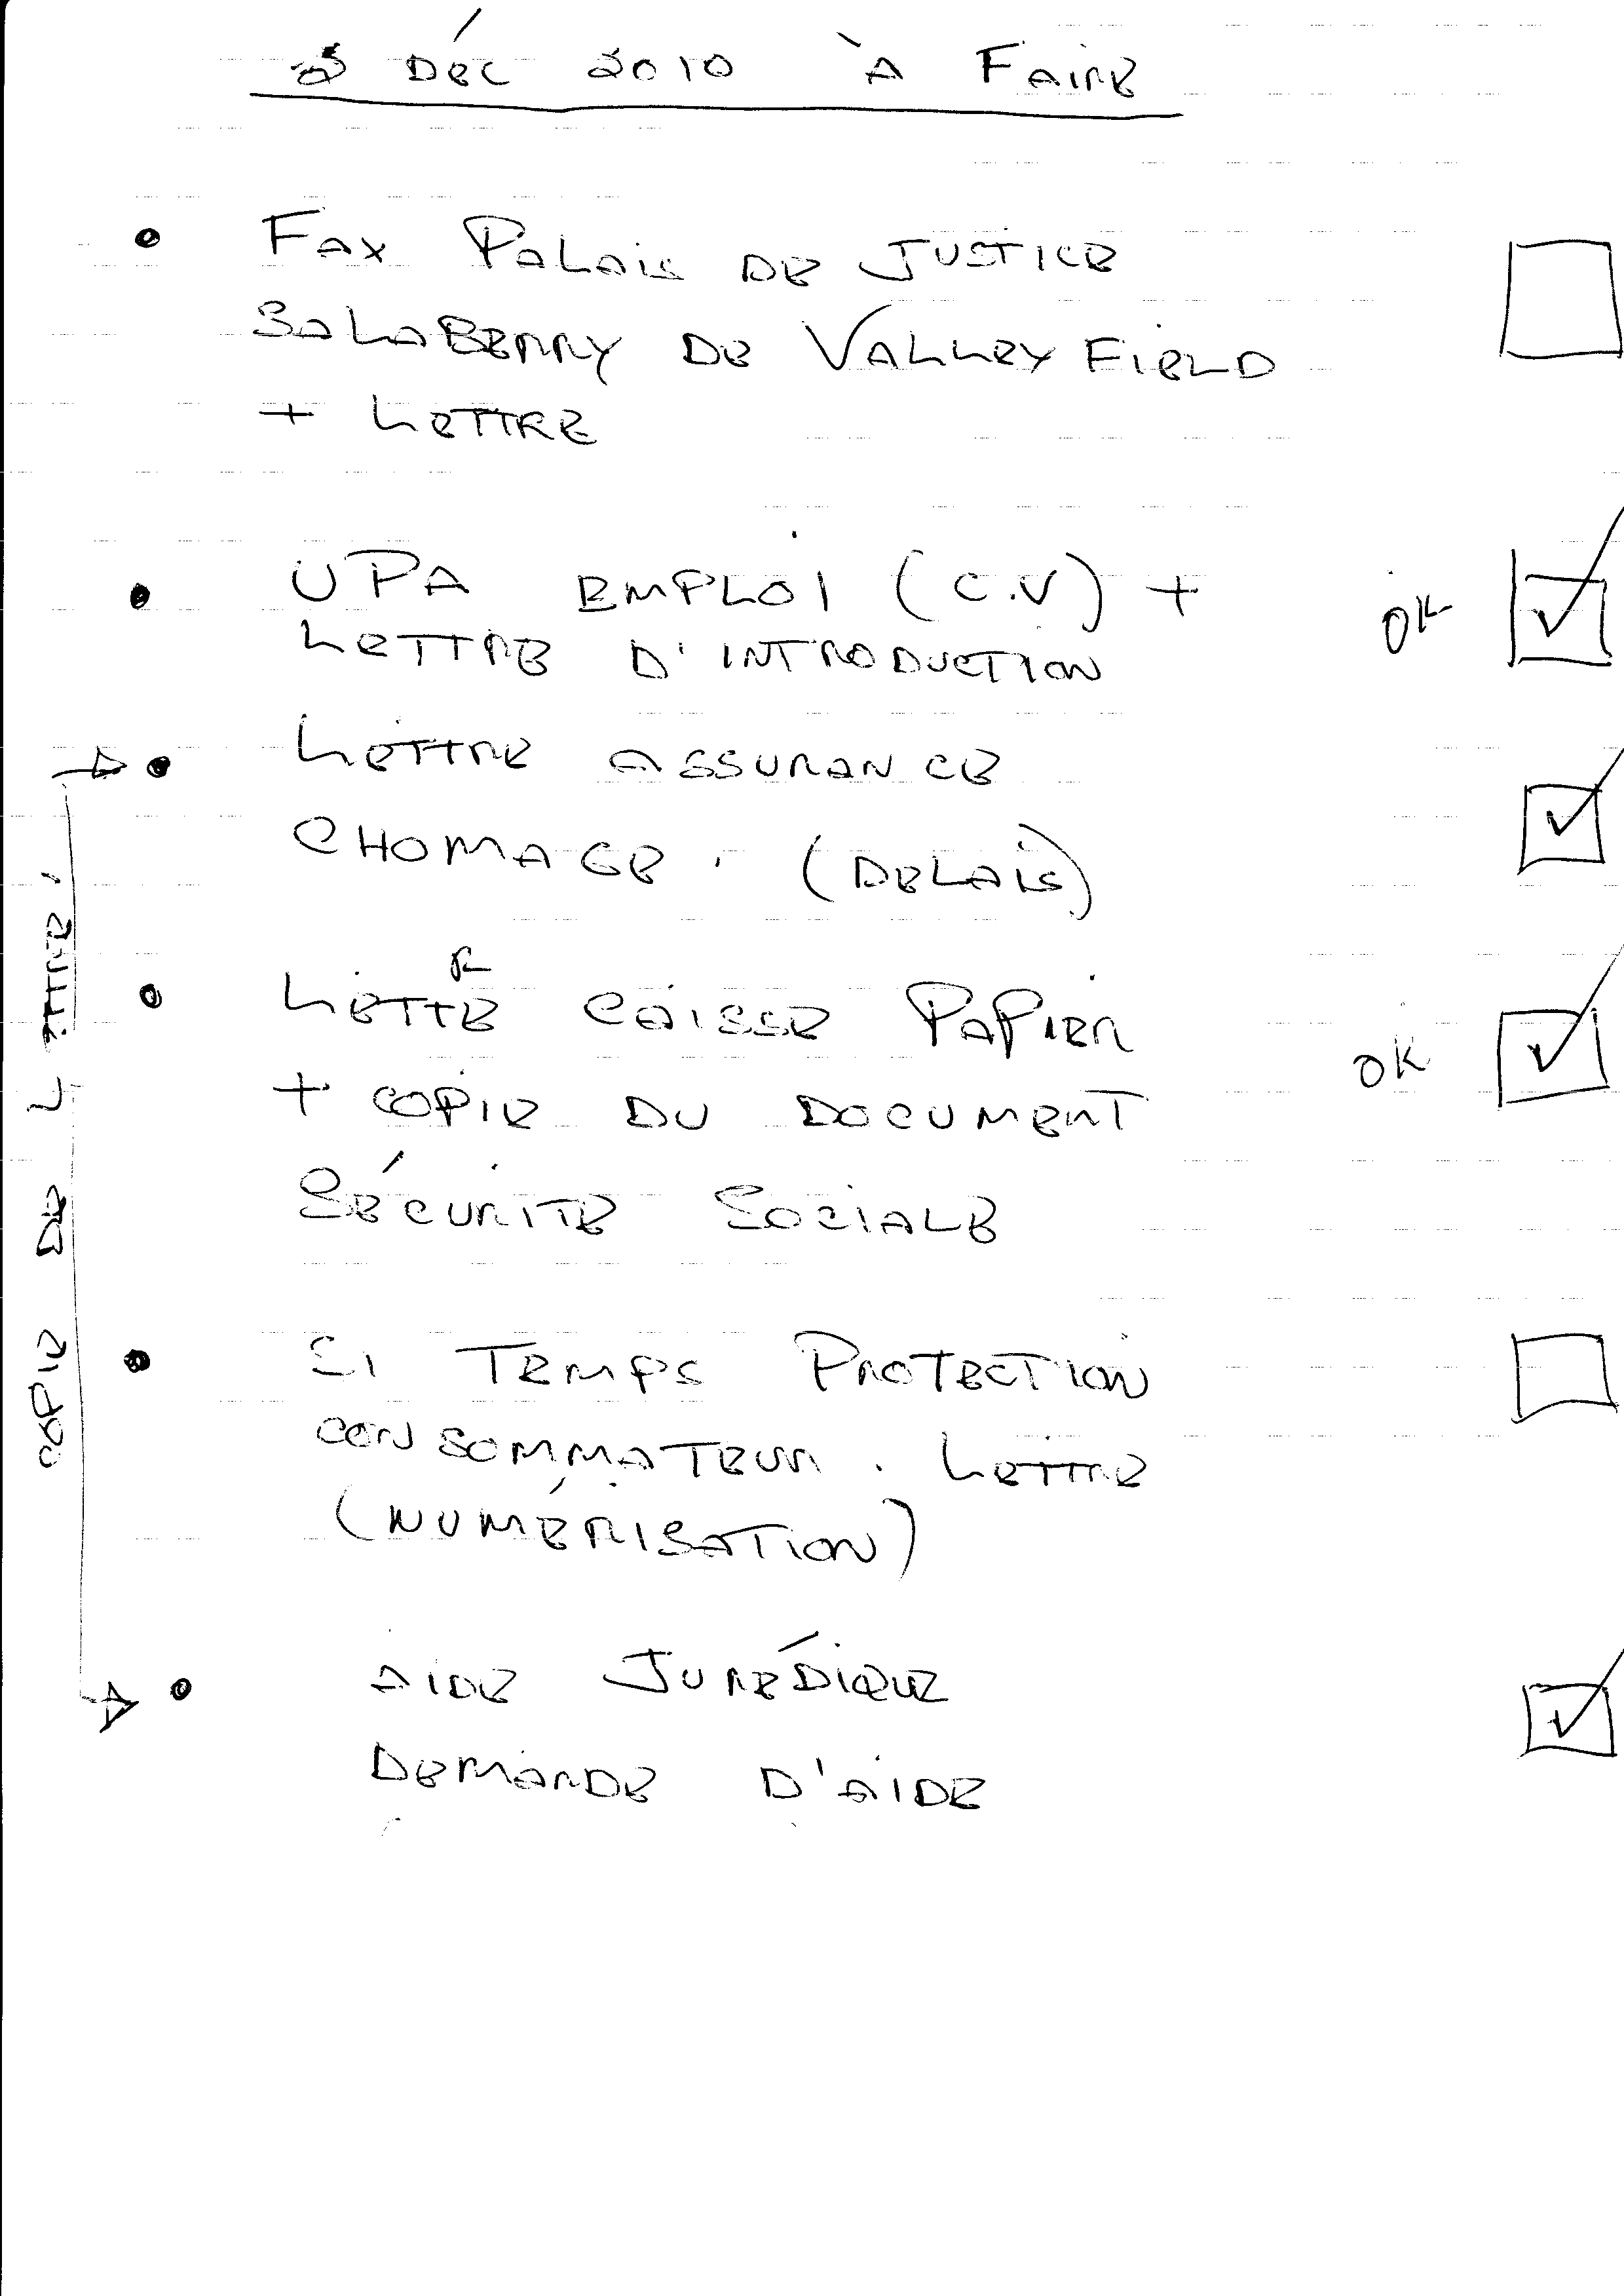 DÉC 2010 À FAIRE
• FAX PALAIS DE JUSTICE
SALABERRY DE VALLEYFIELD
+ LETTRE
• UPA EMPLOI (C.V) +
LETTRE D'INTRODUCTION
OK
• LETTRE ASSURANCE
CHOMAGE. (DELAIS)
• LETTRE CAISSE PAPIER
+ COPIE DU DOCUMENT
OK
SÉCURITE SOCIALE
• SI TEMPS PROTECTION
CONSOMMATEUR. LETTRE
(NUMÉRISATION)
• AIDE JURÉDIQUE
DEMANDE D'AIDE
COPIE DE LETTRE.